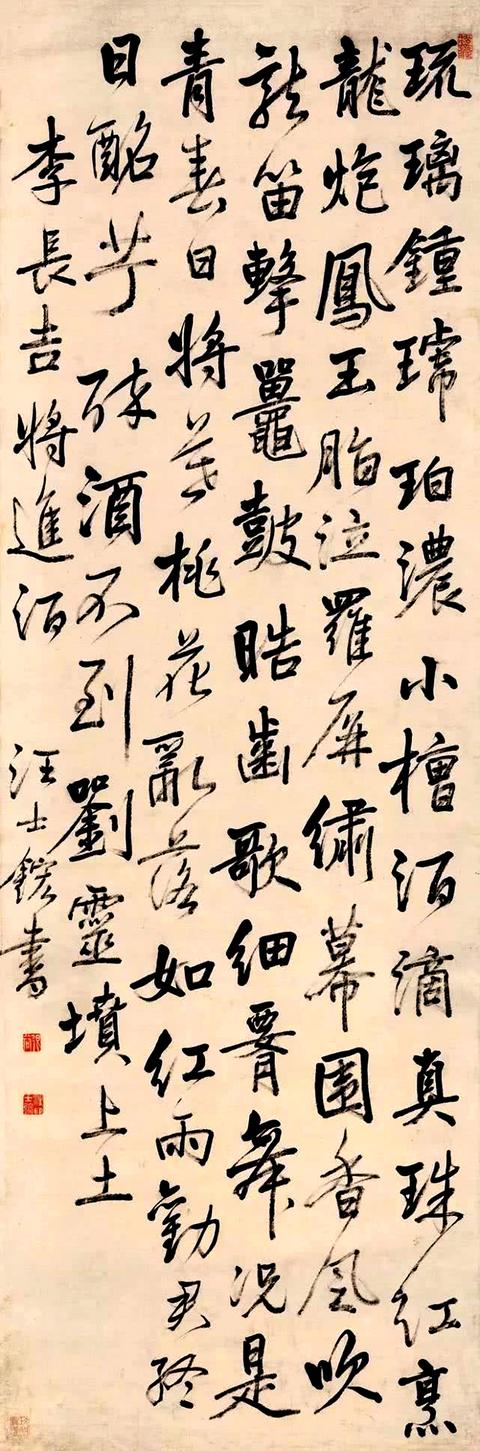 琉璃鍾琥珀濃小槽酒滴真珠紅烹
龍炮鳳玉脂泣羅屏繡幕圍香風吹
龍笛擊鼉鼓晧齒歌細腰舞況是
青春日將暮桃花亂落如紅雨勸君終
日酩艼醉酒不到劉靈墳上土
李長吉將進酒 汪士鋐書